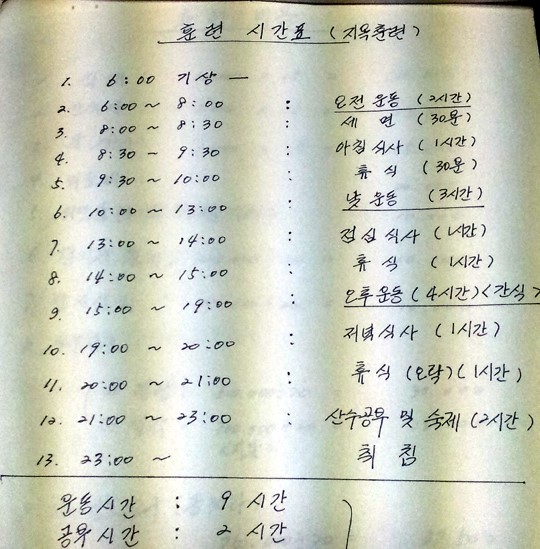 훈련 시간표 (지옥훈련)
1. 6:00 기상 —
2. 6:00 ~ 8:00 : 오전 운동 (2시간)
3. 8:00 ~ 8:30 : 세 면 (30분)
4. 8:30 ~ 9:30 : 아침 식사 (1시간)
5. 9:30 ~ 10:00 : 휴 식 (30분)
6. 10:00 ~ 13:00 : 낮 운동 (3시간)
7. 13:00 ~ 14:00 : 점심 식사 (1시간)
8. 14:00 ~ 15:00 : 휴 식 (1시간)
9. 15:00 ~ 19:00 : 오후운동 (4시간) <간식>
10. 19:00 ~ 20:00 : 저녁식사 (1시간)
11. 20:00 ~ 21:00 : 휴 식 (오락) (1시간)
12. 21:00 ~ 23:00 : 산수공부 및 숙제 (2시간)
13. 23:00 ~ 취 침
운동시간 : 9 시간
공부시간 : 2 시간